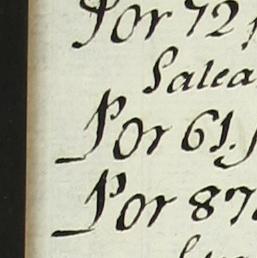 Por 72
Salea
Por 61.
Por 87